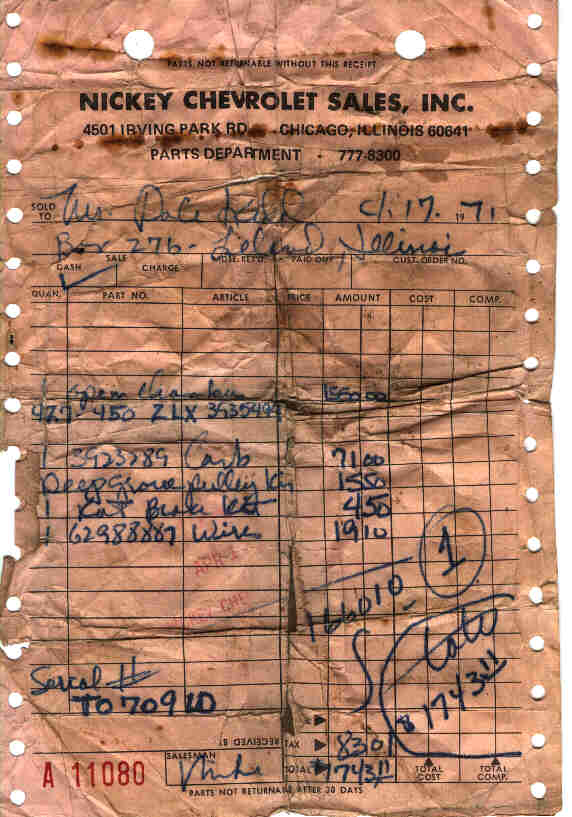 PARTS NOT RETURNABLE WITHOUT THIS RECEIPT
NICKEY CHEVROLET SALES, INC.
4501 IRVING PARK RD. - CHICAGO, ILLINOIS 60641
PARTS DEPARTMENT - 777-8300
SOLD TO Mr. Dale 17. 1971
Box 276 - Leland Illinois
CASH SALE CHARGE MDSE. RET'D. PAID OUT CUST. ORDER NO.
QUAN. PART NO. ARTICLE PRICE AMOUNT COST COMP.
1 open chamber 1550.00
427 450 ZLX
1 3923289 Carb 71 00
Deep Groove pulley Kit 15 50
1 Kit 4 50
1 62988867 Wires 19 10
1
1660 10
Total
$ 1743.11
APR
Serial #
T0709
RECEIVED BY
TAX 83 01
A 11080
SALESMAN Mike
TOTAL 1743.11
TOTAL COST
TOTAL COMP.
PARTS NOT RETURNABLE AFTER 30 DAYS